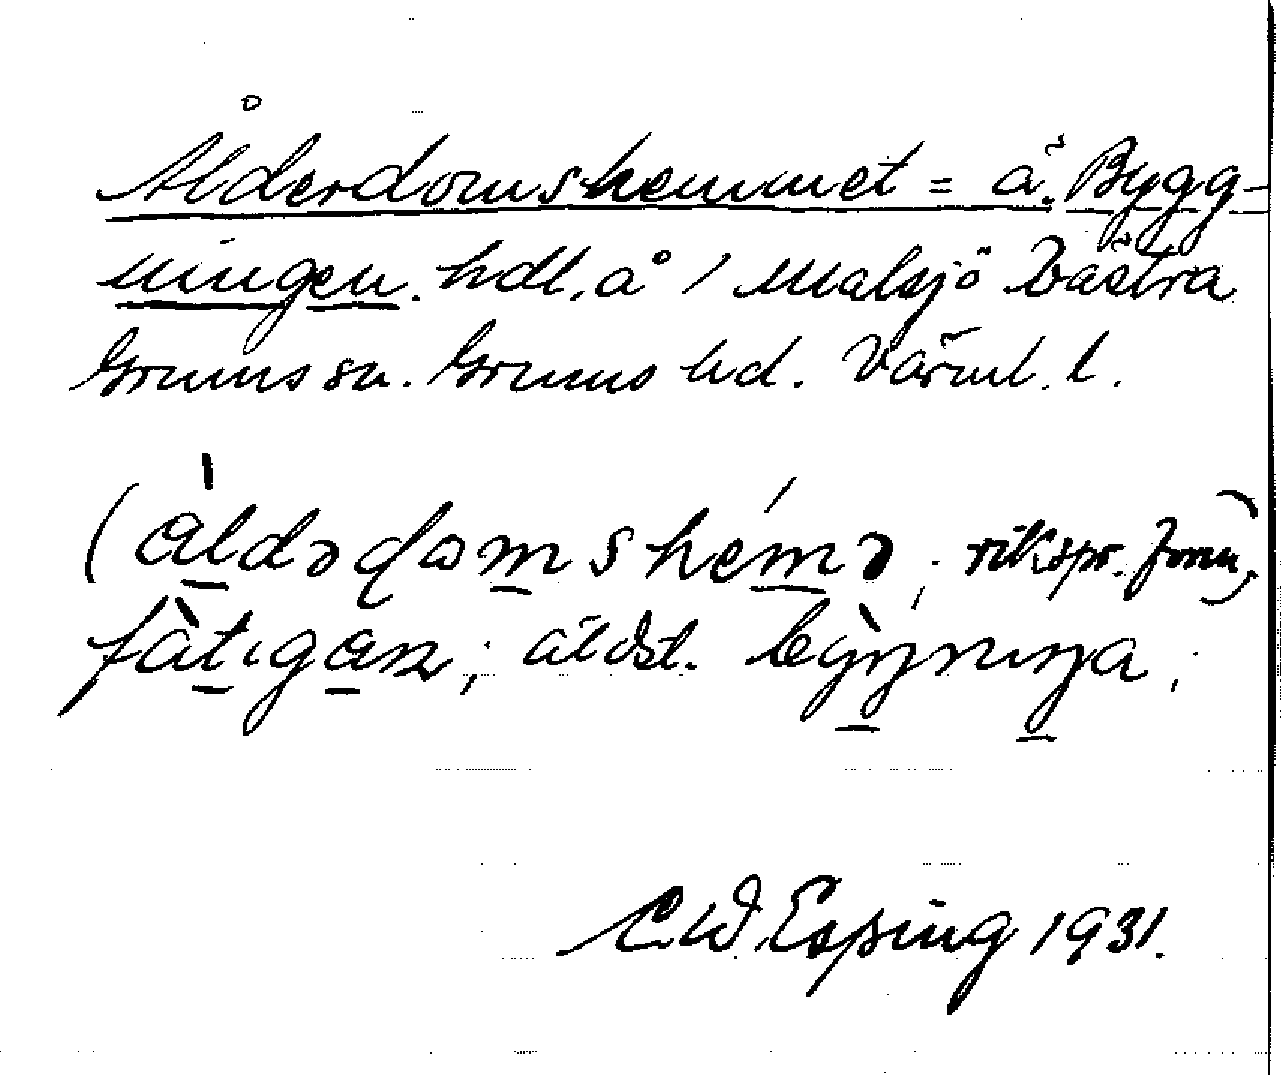 Ålderdomshemmet = ä. Bygg-
ningen. hdl. å / Malsjö Västra
Grums sn. Grums hd. Värml. l.
(åldədomshémə; rikspr. form,)
fàtigan; äldst. bỳŋnıŋa;
C.W. Esping 1931.